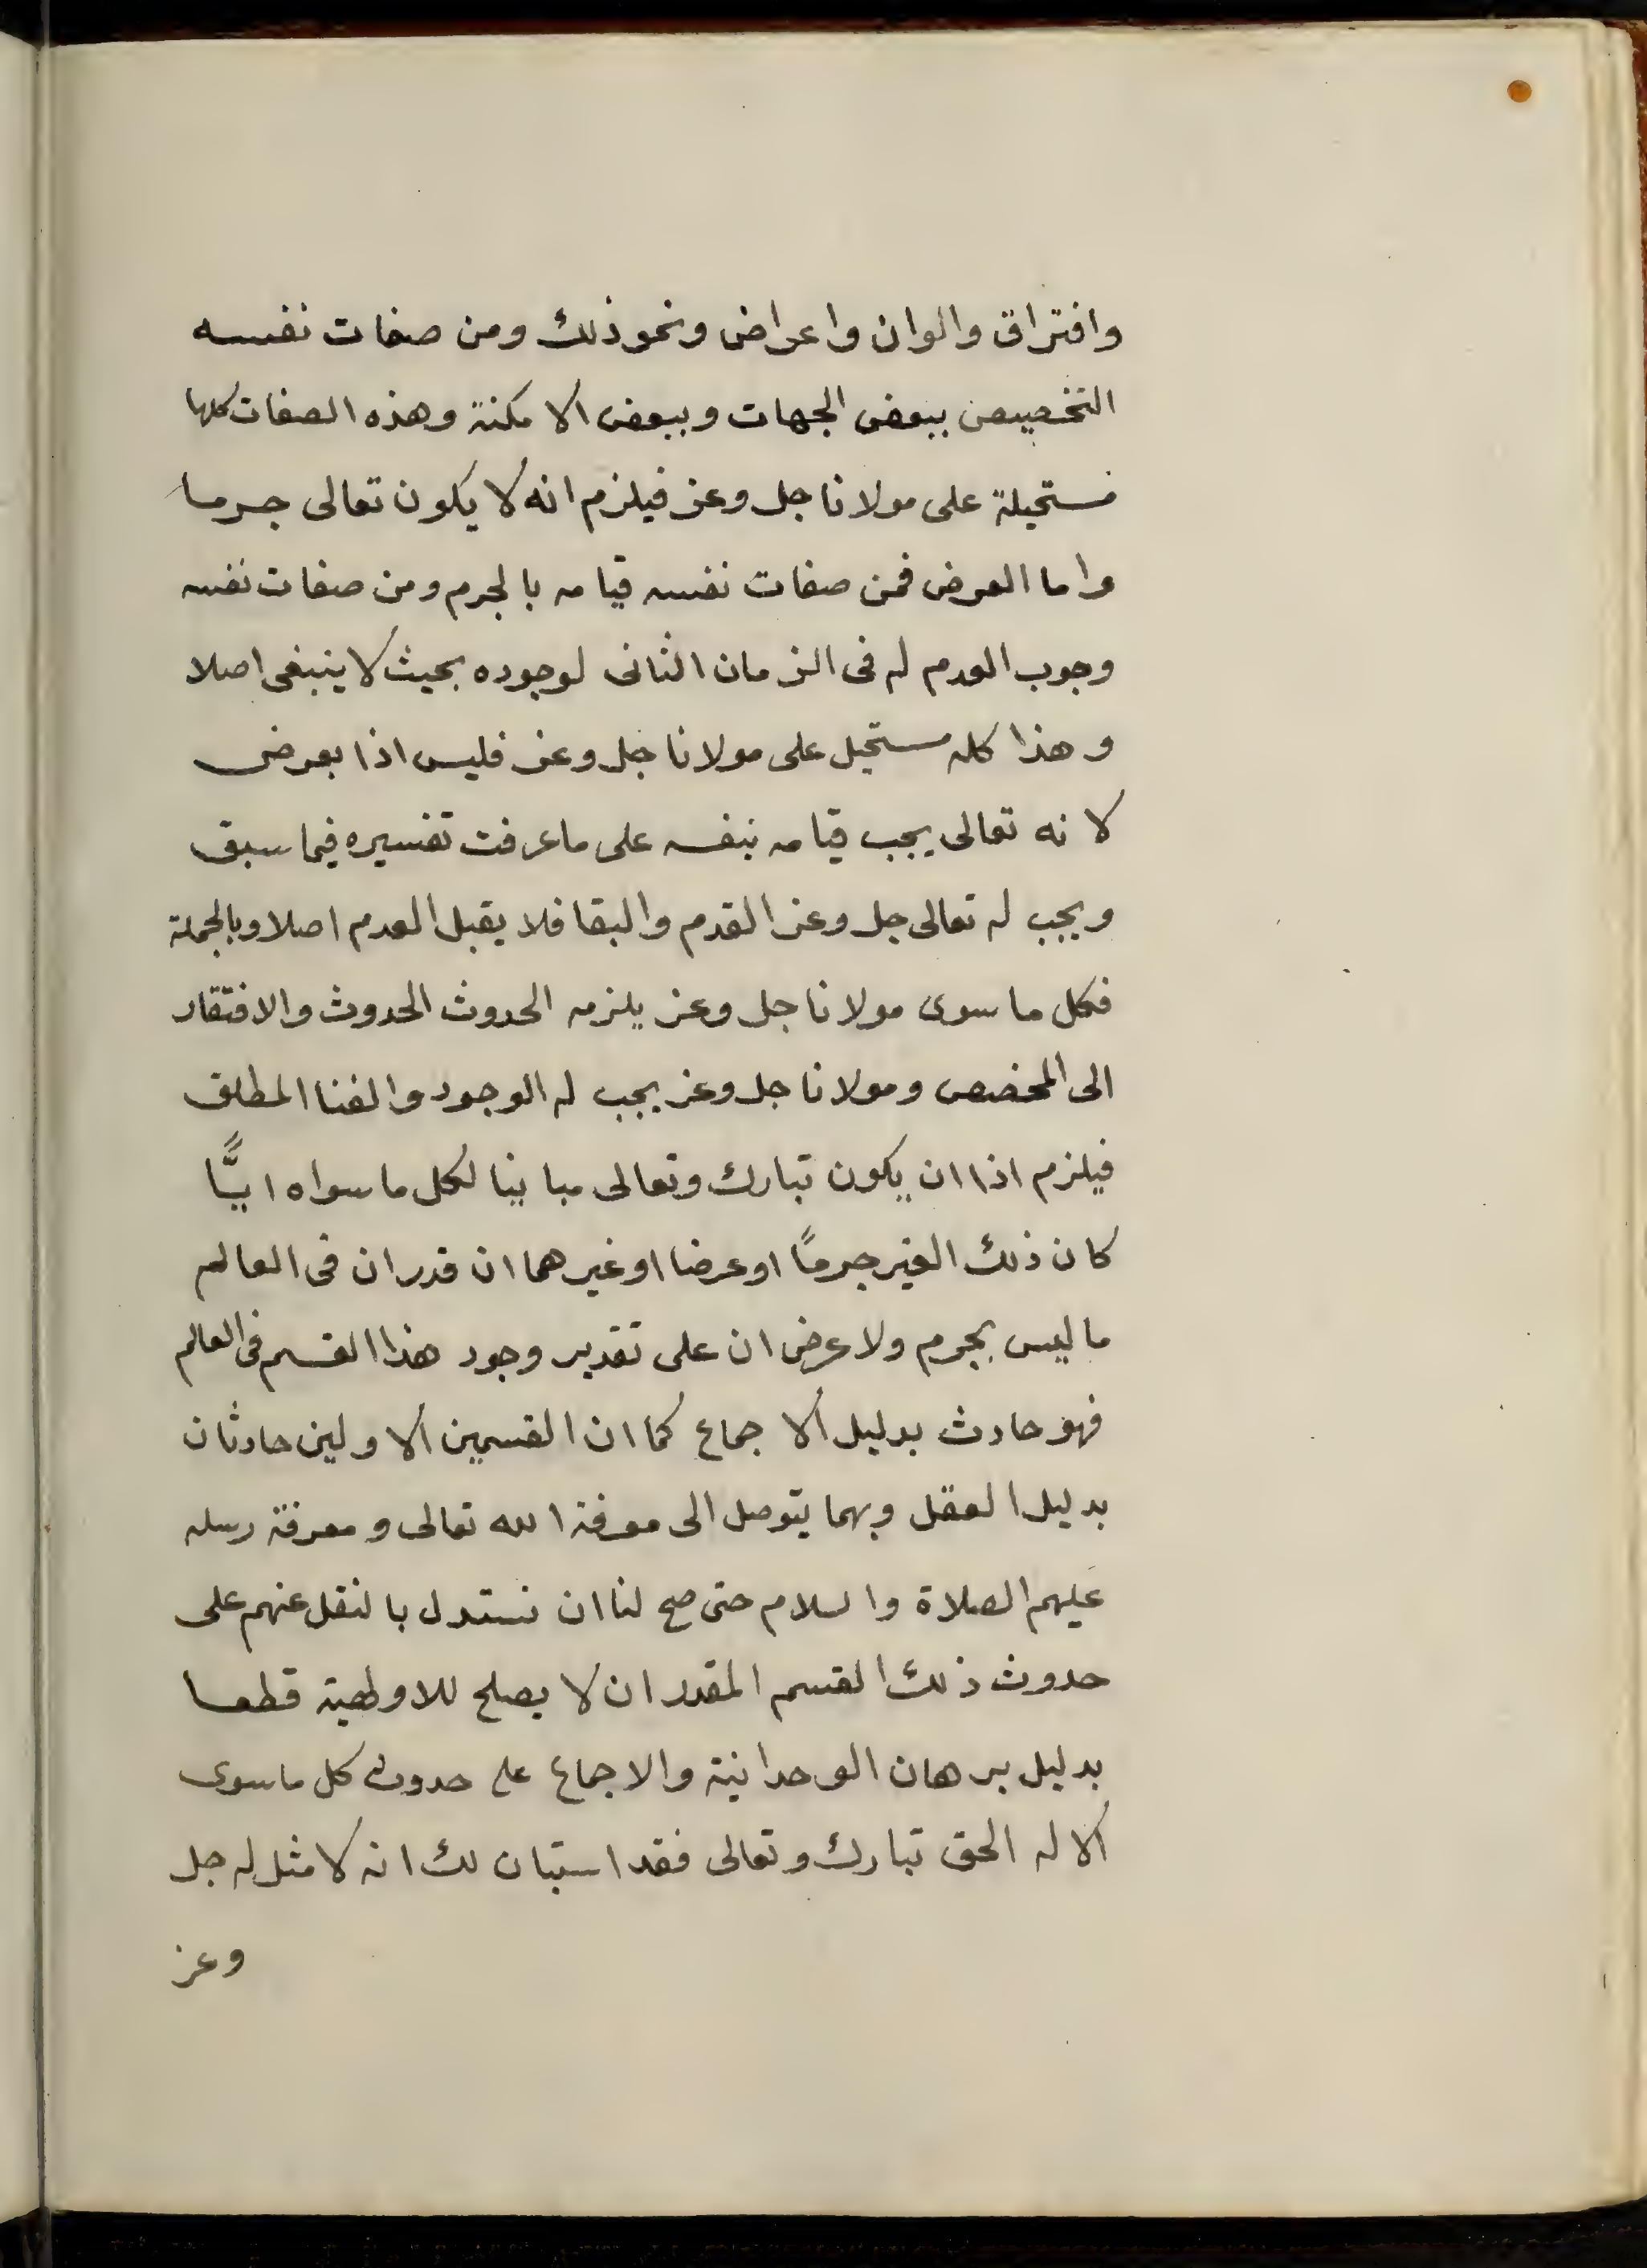 وافتراق والوان واعراض ونحو ذلك ومن صفات نفسه
التخصيص ببعض الجهات وببعض الامكنة وهذه الصفات كلها
مستحيلة على مولانا جل وعز فيلزم انه لا يكون تعالى جرما
واما العرض فمن صفات نفسه قيامه بالجرم ومن صفات نفسه
وجوب العدم له فى الزمان الثانى لوجوده بحيث لا ينبغى اصلا
وهذا كله مستحيل على مولانا جل وعز فليس اذا بعرض
لانه تعالى يجب قيامه بنفسه على ما عرفت تفسيره فيما سبق
ويجب له تعالى جل وعز القدم والبقا فلا يقبل العدم اصلا وبالجملة
فكل ما سوى مولانا جل وعز يلزمه الحدوث الحدوث والافتقار
الى المخصص ومولانا جل وعز يجب له الوجود والغنا المطلق
فيلزم اذا ان يكون تبارك وتعالى مباينا لكل ما سواه ايًّا
كان ذلك الغير جرمًا او عرضا او غيرهما ان قدر ان فى العالم
ما ليس بجرم ولا عرض ان على تقدير وجود هذا القسم فى العالم
فهو حادث بدليل الاجماع كما ان القسمين الاولين حادثان
بدليل العقل وبهما يتوصل الى معرفة الله تعالى ومعرفة رسله
عليهم الصلاة والسلام حتى صح لنا ان نستدل بالنقل عنهم على
حدوث ذلك القسم المقدر ان لا يصلح للاولهية قطعا
بدليل برهان الوحدانية والاجماع على حدوث كل ما سوى
الاله الحق تبارك وتعالى فقد استبان لك انه لا مثل له جل
وعز